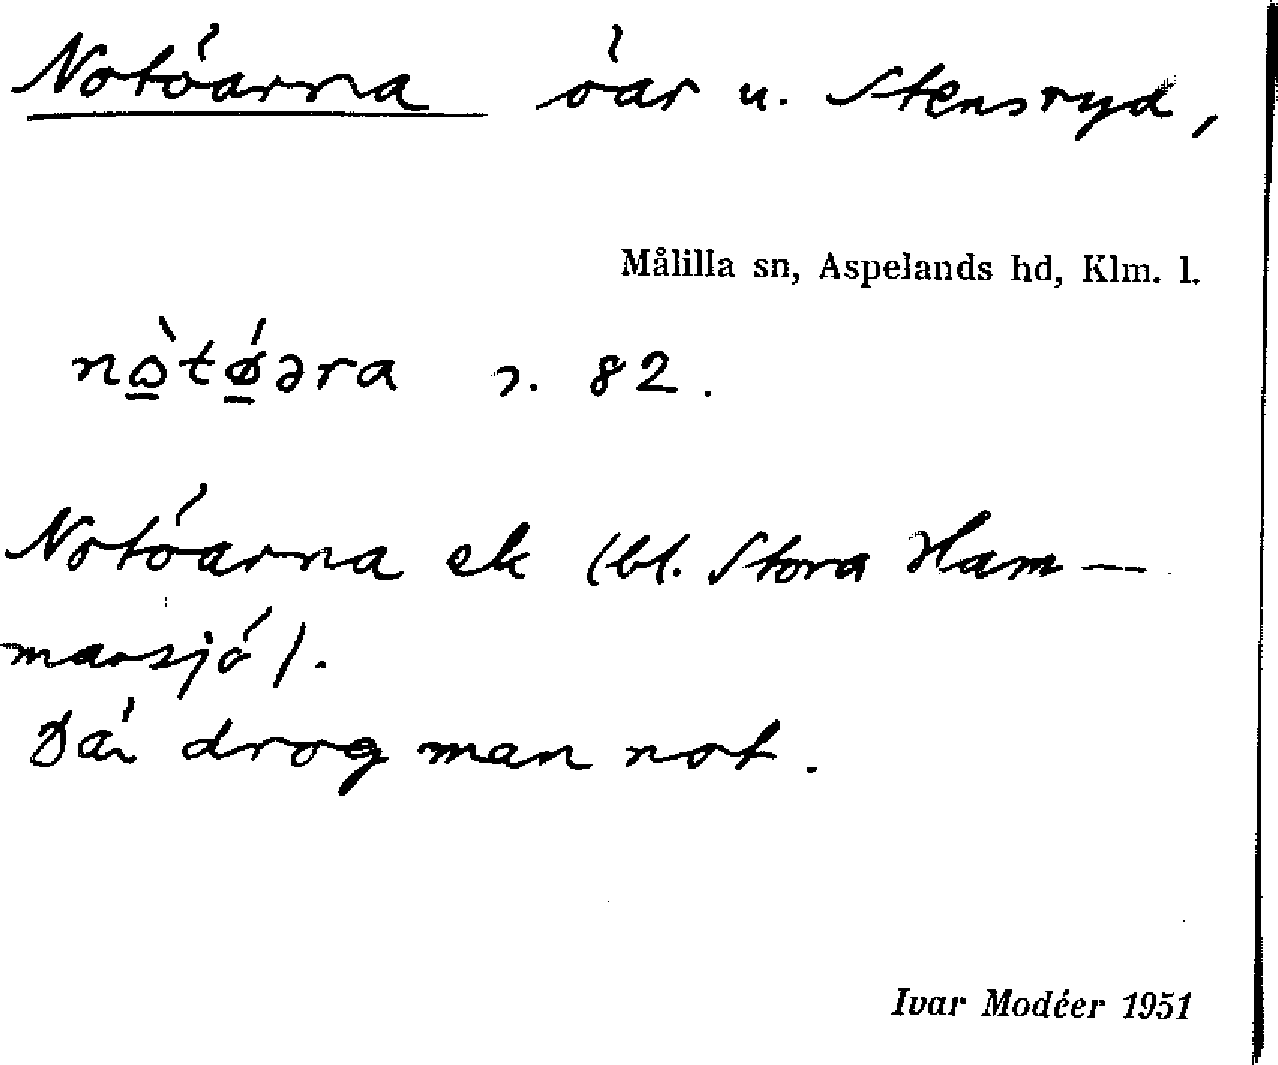 Notöarna öar u. Stensryd,
Målilla sn, Aspelands hd, Klm. l.
nò̲tǿ̲əra s. 82.
Notöarna ek (bl. Stora Ham-
marsjö).
Där drog man not.
Ivar Modéer 1951